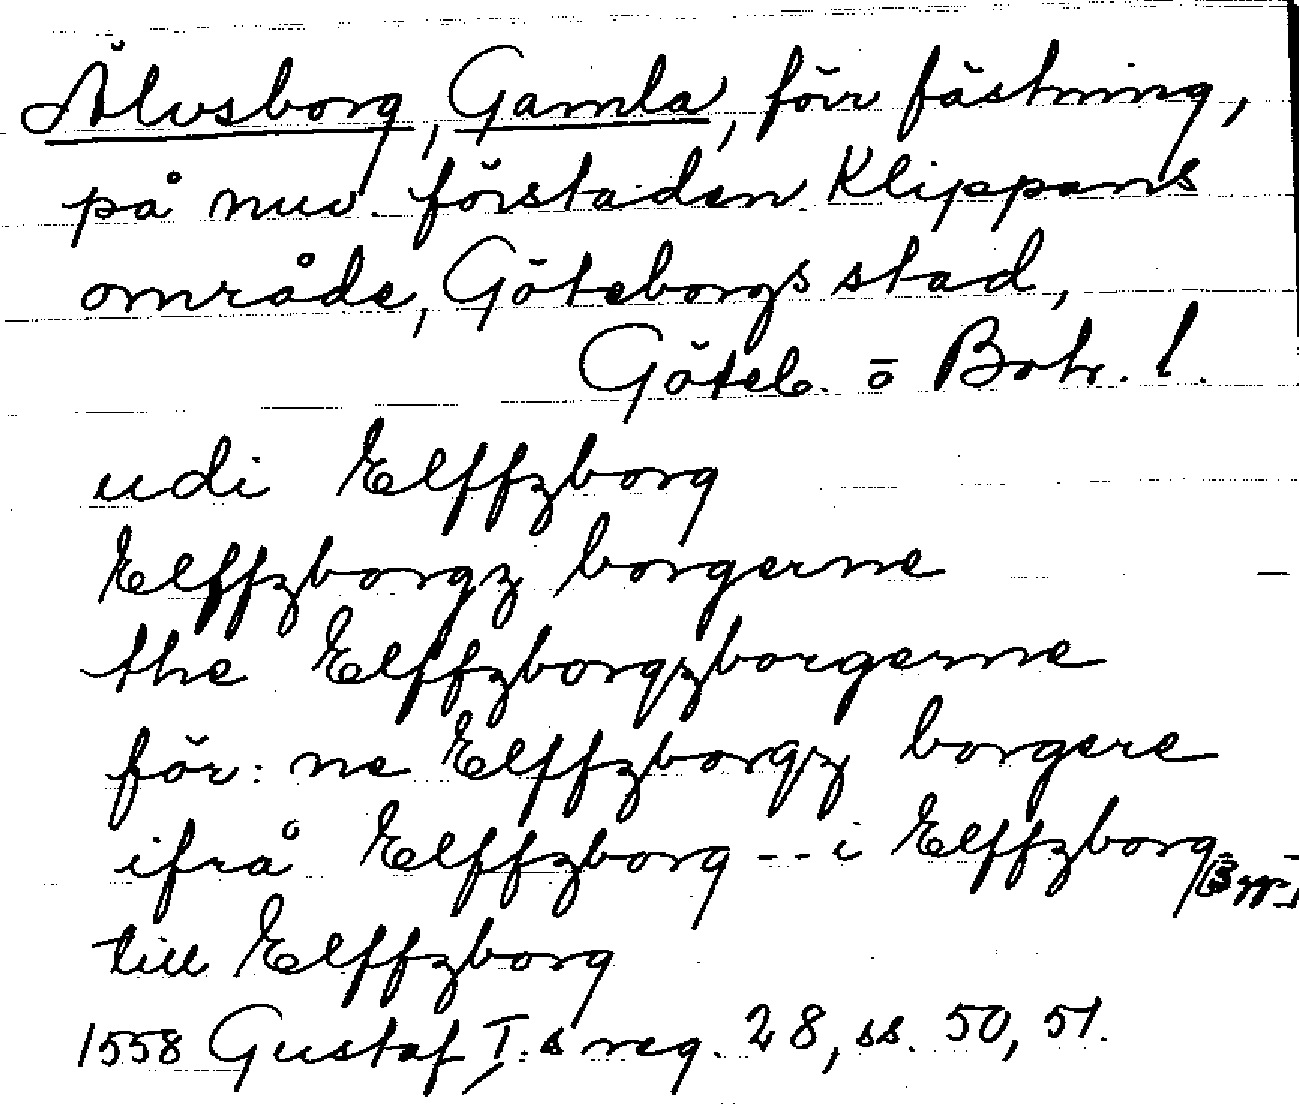 Älvsborg, Gamla, förr fästning,
på nuv. förstaden Klippans
område, Göteborgs stad,
Göteb. o Boh. l.
udi Elffzborg
Elffzborgz borgerne
the Elffzborgzborgerne
för:ne Elffzborgz borgere
ifrå Elffzborg -- i Elffzborg [3 ggr]
till Elffzborg
1558 Gustaf I:s reg. 28, ss. 50, 51.